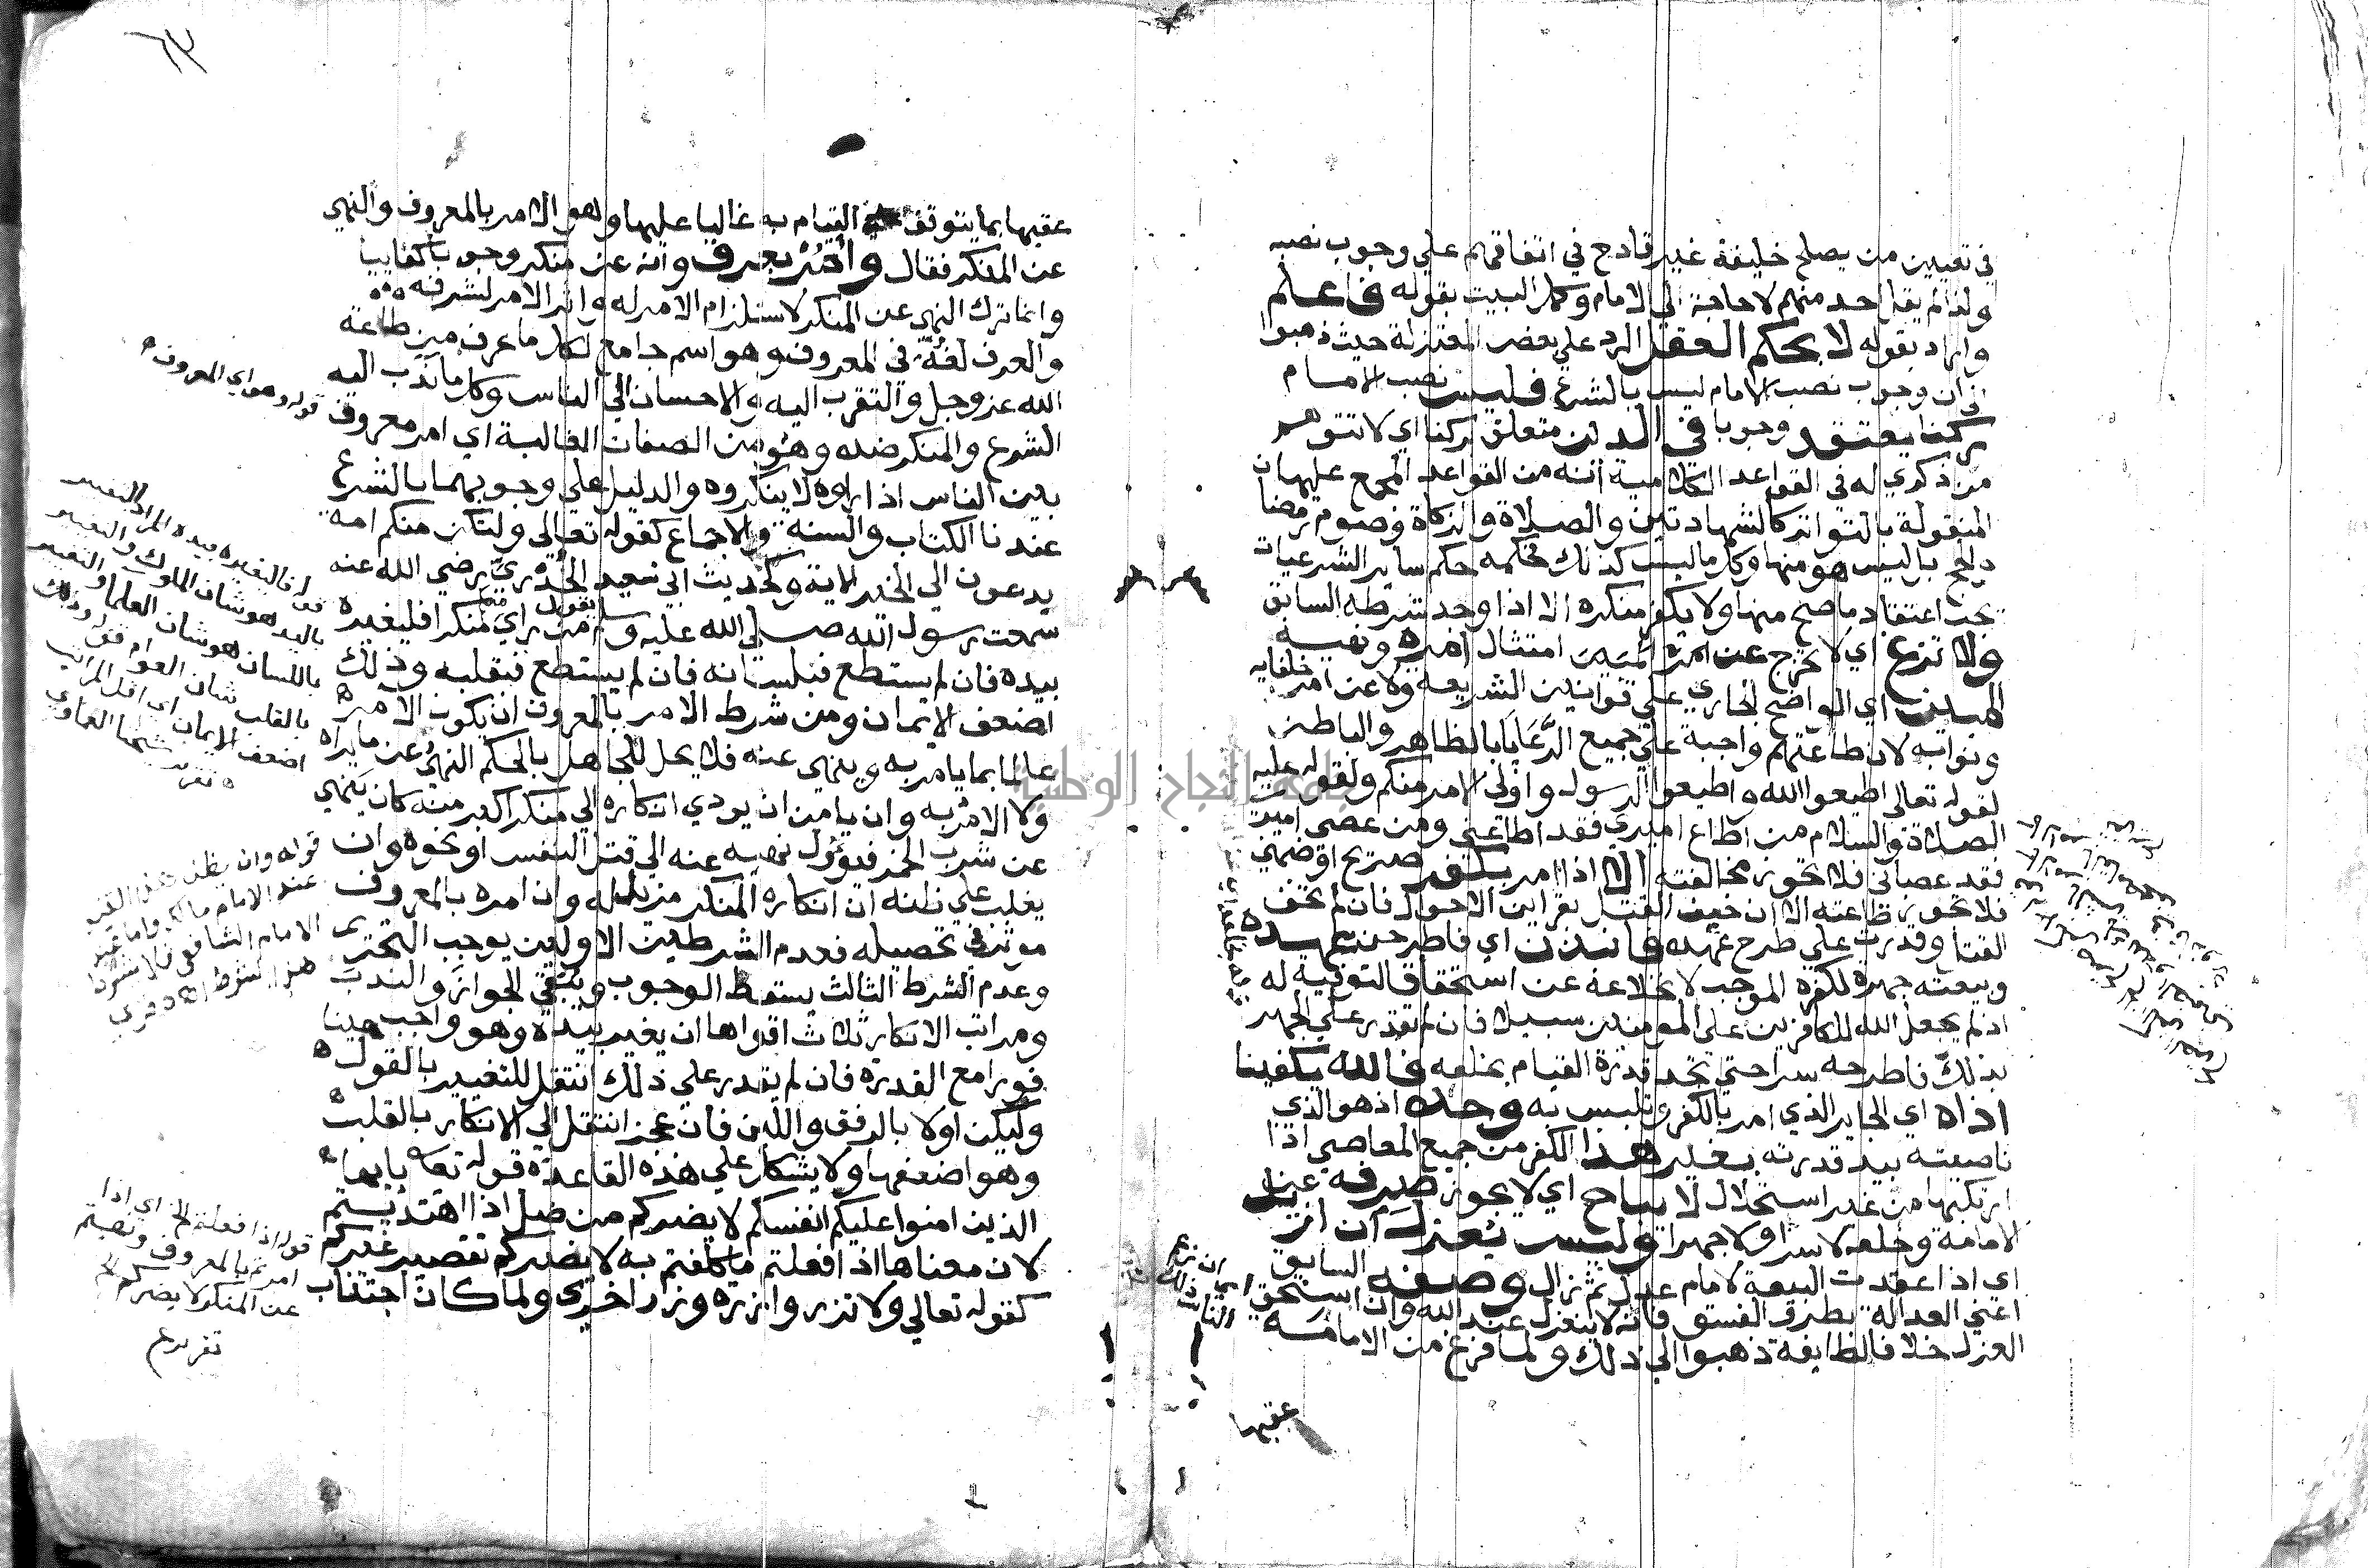 في تعيين من يصلح خليفة غير قادح في اتفاقهم علي وجوب نصبه
ولذا لم يقل احد منهم لا حاجة الي الامام وكمل البيت بقوله فاعلم
واراد بقوله لا بحكم العقل الرد علي بعض المعتزلة حيث ذهبوا
الي ان وجوب نصب الامام ليس بالشرع فليس نصب الامام
ركنا يعتقد وجوبا في الدين متعلق بركنا اي لا تتوهم
من ذكري له في القواعد الكلامية انه من القواعد المجمع عليها
المنقولة بالتواتر كالشهادتين والصلاة والزكاة وصوم رمضان
والحج بل ليس هو منها وكل ما ليس كذلك فحكمه حكم ساير الشرعيات
يجب اعتقاد ما صح منها ولا يكفر منكره الا اذا وجد شرطه السابق
ولا تزغ اي لا تخرج عن امره المبين امتثال امره ونهيه
المبين اي الواضح الجاري علي قوانين الشريعة ولا عن امر خلفايه
ونوابه لان طاعتهم واجبة علي جميع الرعايا بالظاهر والباطن
لقوله تعالي اطيعوا الله واطيعوا الرسول واولي الامر منكم ولقوله عليه
الصلاة والسلام من اطاع اميري فقد اطاعني ومن عصي اميري
فقد عصاني فلا تجوز مخالفته الا اذا امر بكفر صريح او ضمني
فلا تجوز طاعته الا ان خيف القتل بقراين الاحوال فان لم تخف
القتل وقدرت علي طرح عهده فانبذن اي فاطرحن عهده
وبيعته جهرة لكفره الموجب لانخلاعه عن استحقاق التولية له
اذ لم يجعل الله للكافرين علي المومنين سبيلا فان لم تقدر علي الجهر
بذلك فاطرحه سرا حتي تجد قدرة القيام بخلعه فالله يكفينا
اذاه اي الجاير الذي امر بالكفر وتلبس به وحده اذ هو الذي
ناصيته بيد قدرته بغير هذا الكفر من جميع المعاصي اذا
ارتكبها من غير استحلال لا يباح اي لا يجوز صرفه عن
الامامة وخلعه لا سرا ولا جهرا وليس يعزل ان ازيل
اي اذا عقدت البيعة لامام عدل ثم زال وصفه السابق
اعني العدالة بطرق الفسق فانه لا ينعزل عند الله وان استحق
العزل خلافا لطايفة ذهبوا الي ذلك ولما فرغ من الامامة
عقبها
٦٣
عقبها بما يتوقف القيام به غالبا عليها وهو الامر بالمعروف والنهي
عن المنكر فقال وأمر بعرف وانه عن منكر وجوبا كفاييا
وانما ترك النهي عن المنكر لاستلزام الامر له واثر الامر لشرفه
والعرف لغة في المعروف وهو اسم جامع لكل ما عرف من طاعة
الله عز وجل والتقرب اليه والاحسان الي الناس وكل ما ندب اليه
الشرع والمنكر ضده وهو من الصفات الغالبة اي امر معروف
بين الناس اذا راوه لا ينكروه والدليل علي وجوبهما بالشرع
عندنا الكتاب والسنة والاجماع كقوله تعالي ولتكن منكم امة
يدعون الي الخير الاية وكحديث ابي سعيد الخدري رضي الله عنه
سمعت رسول الله صلي الله عليه وسلم يقول من راي منكم منكرا فليغيره
بيده فان لم يستطع فبلسانه فان لم يستطع فبقلبه وذلك
اضعف الايمان ومن شرط الامر بالمعروف ان يكون الآمر
عالما بما يامر به وينهي عنه فلا يحل للجاهل بالحكم النهي عن ما يراه
ولا الامر به وان يامن ان يودي انكاره الي منكر اكبر منه كان ينهي
عن شرب الخمر فيؤول نهيه عنه الي قتل النفس او نحوه وان
يغلب علي ظنه ان انكاره المنكر مزيل له وان امره بالمعروف
موثر في تحصيله فعدم الشرطين الاولين يوجب التحريم
وعدم الشرط الثالث يسقط الوجوب ويبقي الجواز والندب
ومراتب الانكار ثلاث اقواها ان يغير بيده وهو واجب عينا
فورا مع القدرة فان لم يقدر علي ذلك انتقل للتغيير بالقول
وليكن اولا بالرفق واللين فان عجز انتقل الي الانكار بالقلب
وهو اضعفها ولا يشكل علي هذه القاعدة قوله تعالي يايها
الذين امنوا عليكم انفسكم لا يضركم من ضل اذا اهتديتم
لان معناها اذا فعلتم ما كلفتم به لا يضركم تقصير غيركم
كقوله تعالي ولا تزر وازرة وزر اخري ولما كان اجتناب
قوله وهو اي المعروف
قوله فاليغيره بيده المراد التغيير
باليد هو شان الملوك والتغيير
باللسان هو شان العلما والتغيير
بالقلب شان العوام قوله وذلك
اضعف الايمان اي اقل المراتب
قوله وان يظن
عند الامام مالك واما عند
الامام الشافعي فلا يشترط
هذا الشرط
قوله اذا فعلتم الخ اي اذا
امرتم بالمعروف ونهيتم
عن المنكر لا يضركم الخ
جامعة النجاح الوطنية